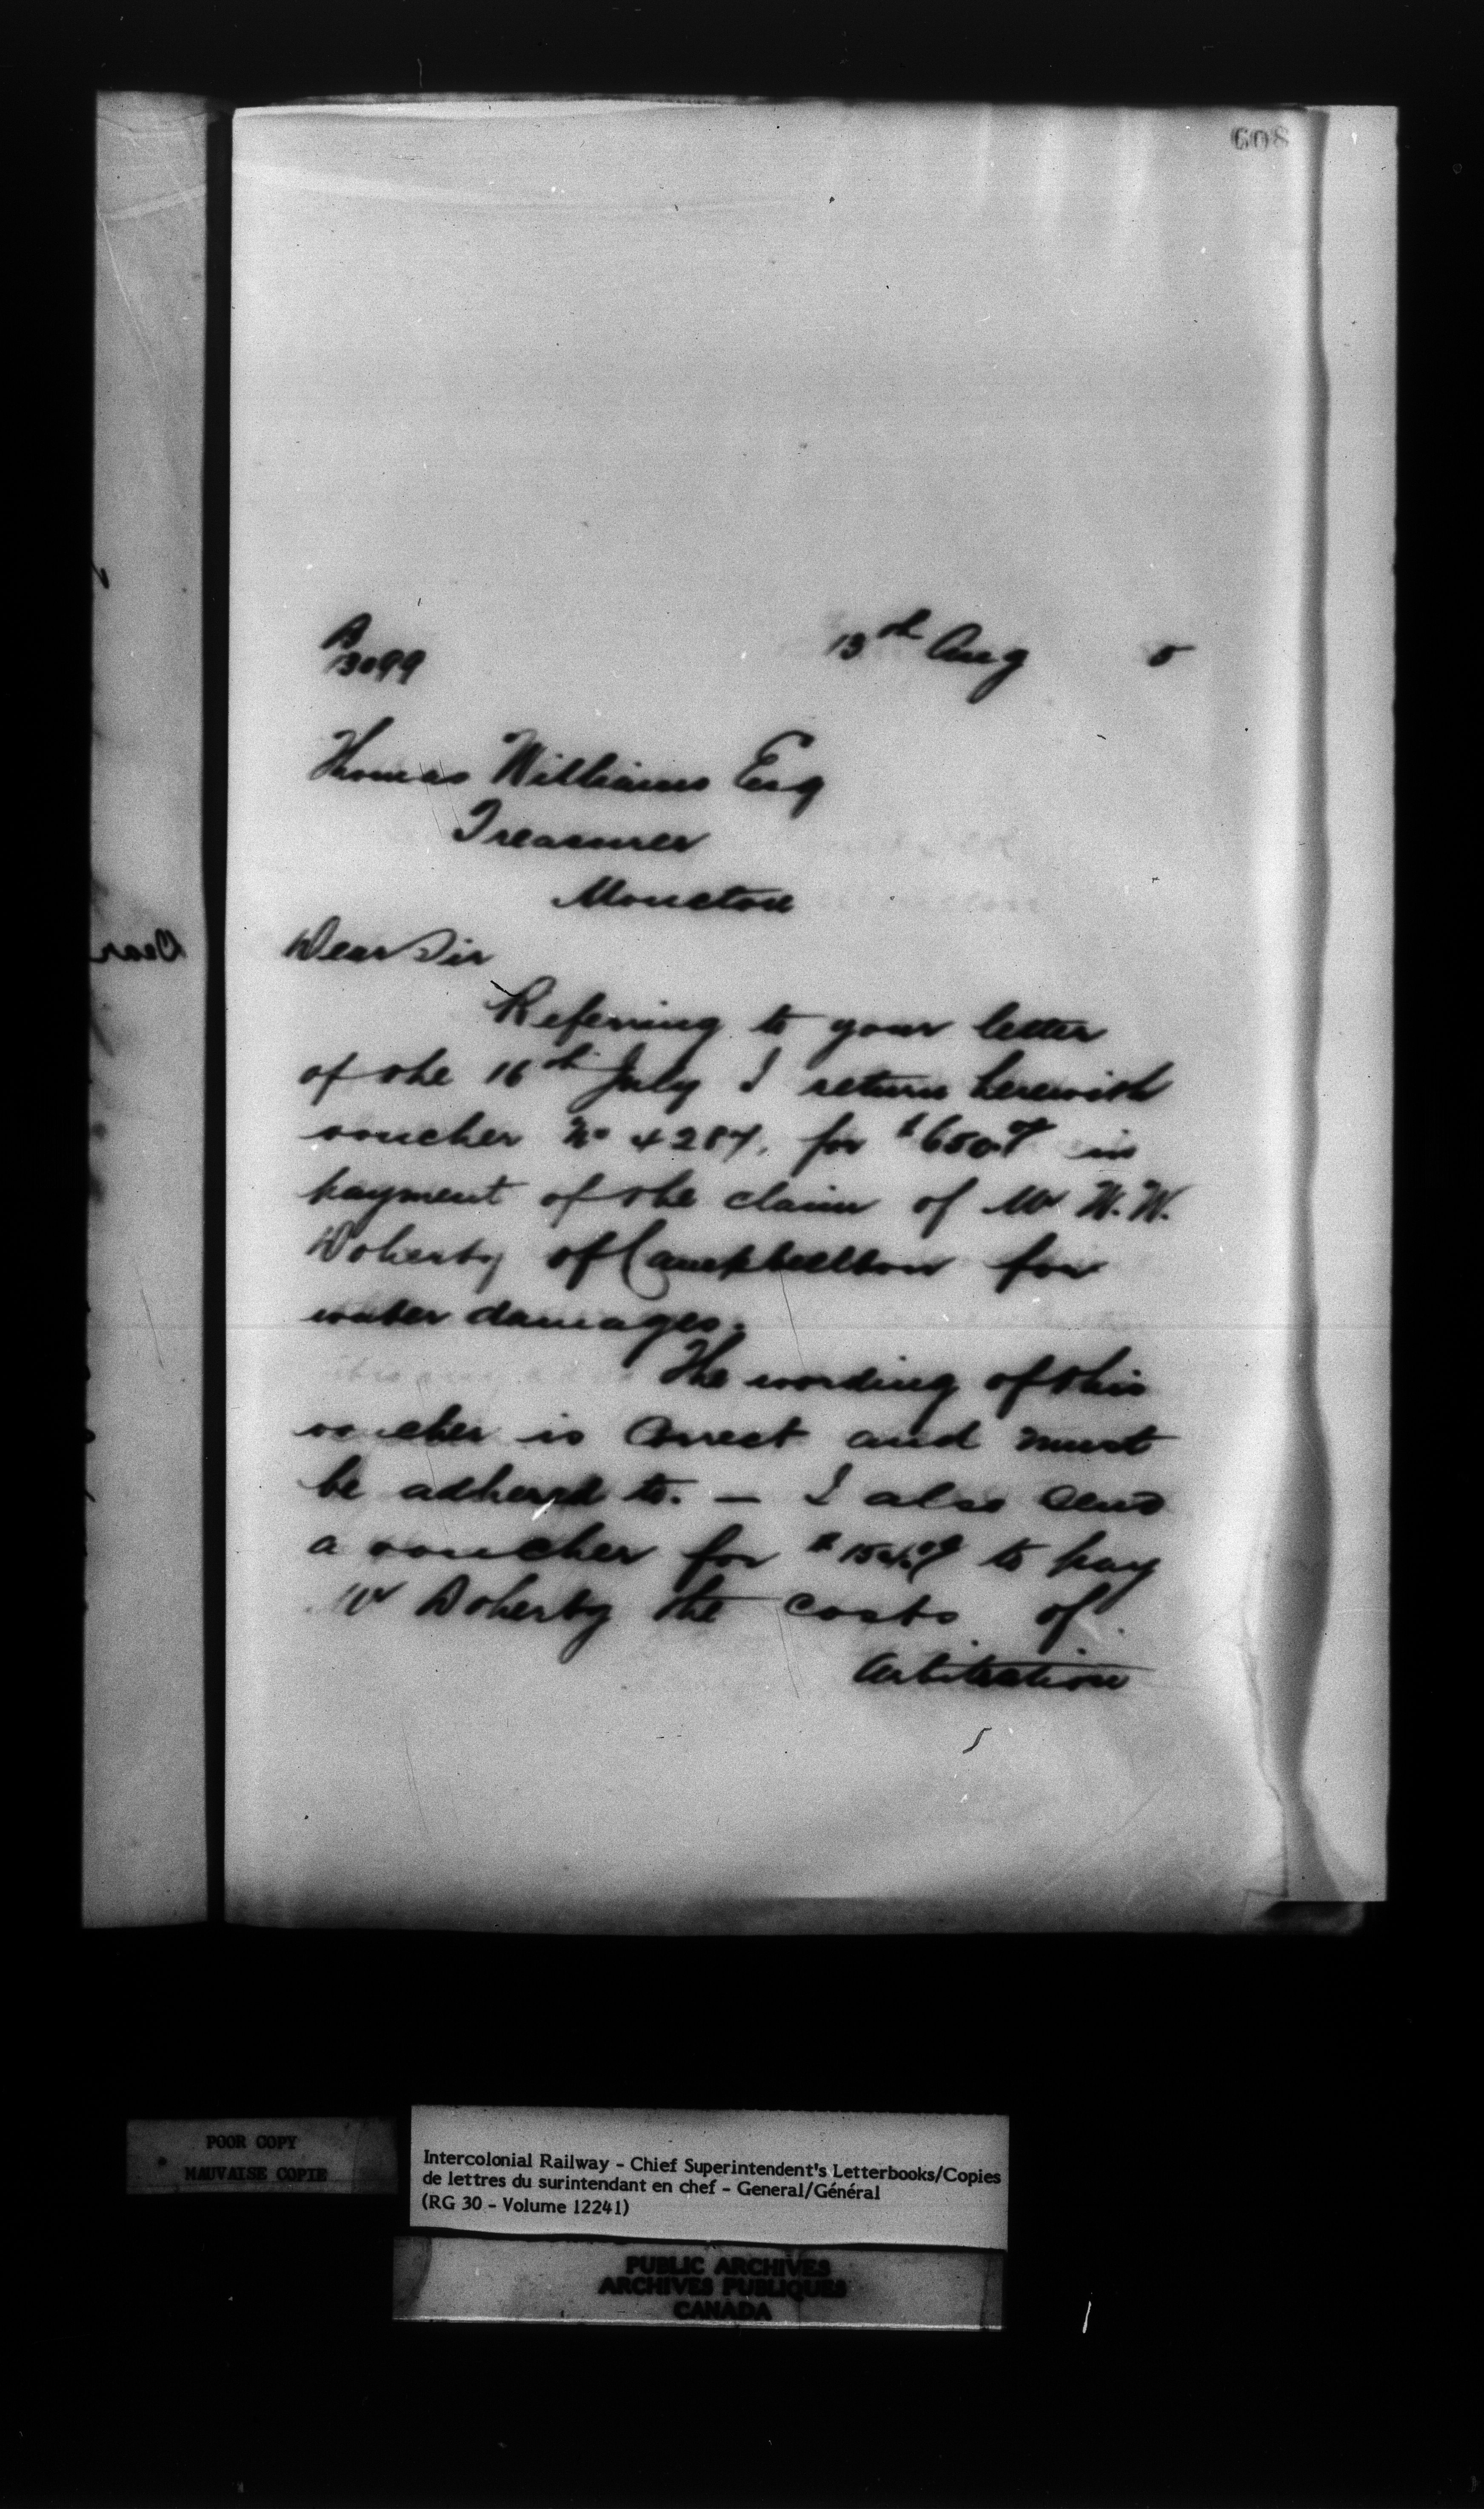 608
A
13099
13th Aug 5
Thomas Williams Esq
Treasurer
Moncton
Dear Sir
Referring to your letter
of the 16th July I return herewith
voucher No 4287, for $600 in
payment of the claim of Mr W. W.
Doherty of Campbellton for
water damages.
The wording of this
voucher is correct and must
be adhered to. — I also send
a voucher for to pay
Mr Doherty the costs of
arbitration
Dear
POOR COPY
MAUVAISE COPIE
Intercolonial Railway - Chief Superintendent's Letterbooks/Copies
de lettres du surintendant en chef - General/Général
(RG 30 - Volume 12241)
PUBLIC ARCHIVES
ARCHIVES PUBLIQUES
CANADA